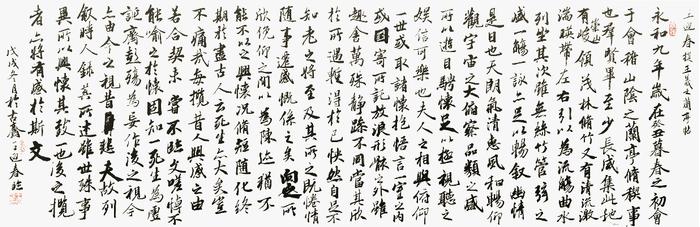 永和九年歲在癸丑暮春之初會
于會稽山陰之蘭亭脩稧事
也群賢畢至少長咸集此地
有崇山峻領茂林脩竹又有清流激
湍暎帶左右引以為流觴曲水
列坐其次雖無絲竹管弦之
盛一觴一詠亦足以暢敘幽情
是日也天朗氣清惠風和暢仰
觀宇宙之大俯察品類之盛
所以遊目騁懷足以極視聽之
娛信可樂也夫人之相與俯仰
一世或取諸懷抱悟言一室之內
或因寄所託放浪形骸之外雖
趣舍萬殊靜躁不同當其欣
於所遇蹔得於己怏然自足不
知老之將至及其所之既惓情
隨事遷感慨係之矣向之所
欣俛仰之間以為陳迹猶不
能不以之興懷況脩短隨化終
期於盡古人云死生亦大矣豈
不痛哉每攬昔人興感之由
若合一契未嘗不臨文嗟悼不
能喻之於懷固知一死生為虛
誕齊彭殤為妄作後之視今
亦由今之視昔悲夫故列
敘時人錄其所述雖世殊事
異所以興懷其致一也後之攬
者亦將有感於斯文
戊戌冬月於古 迎春臨